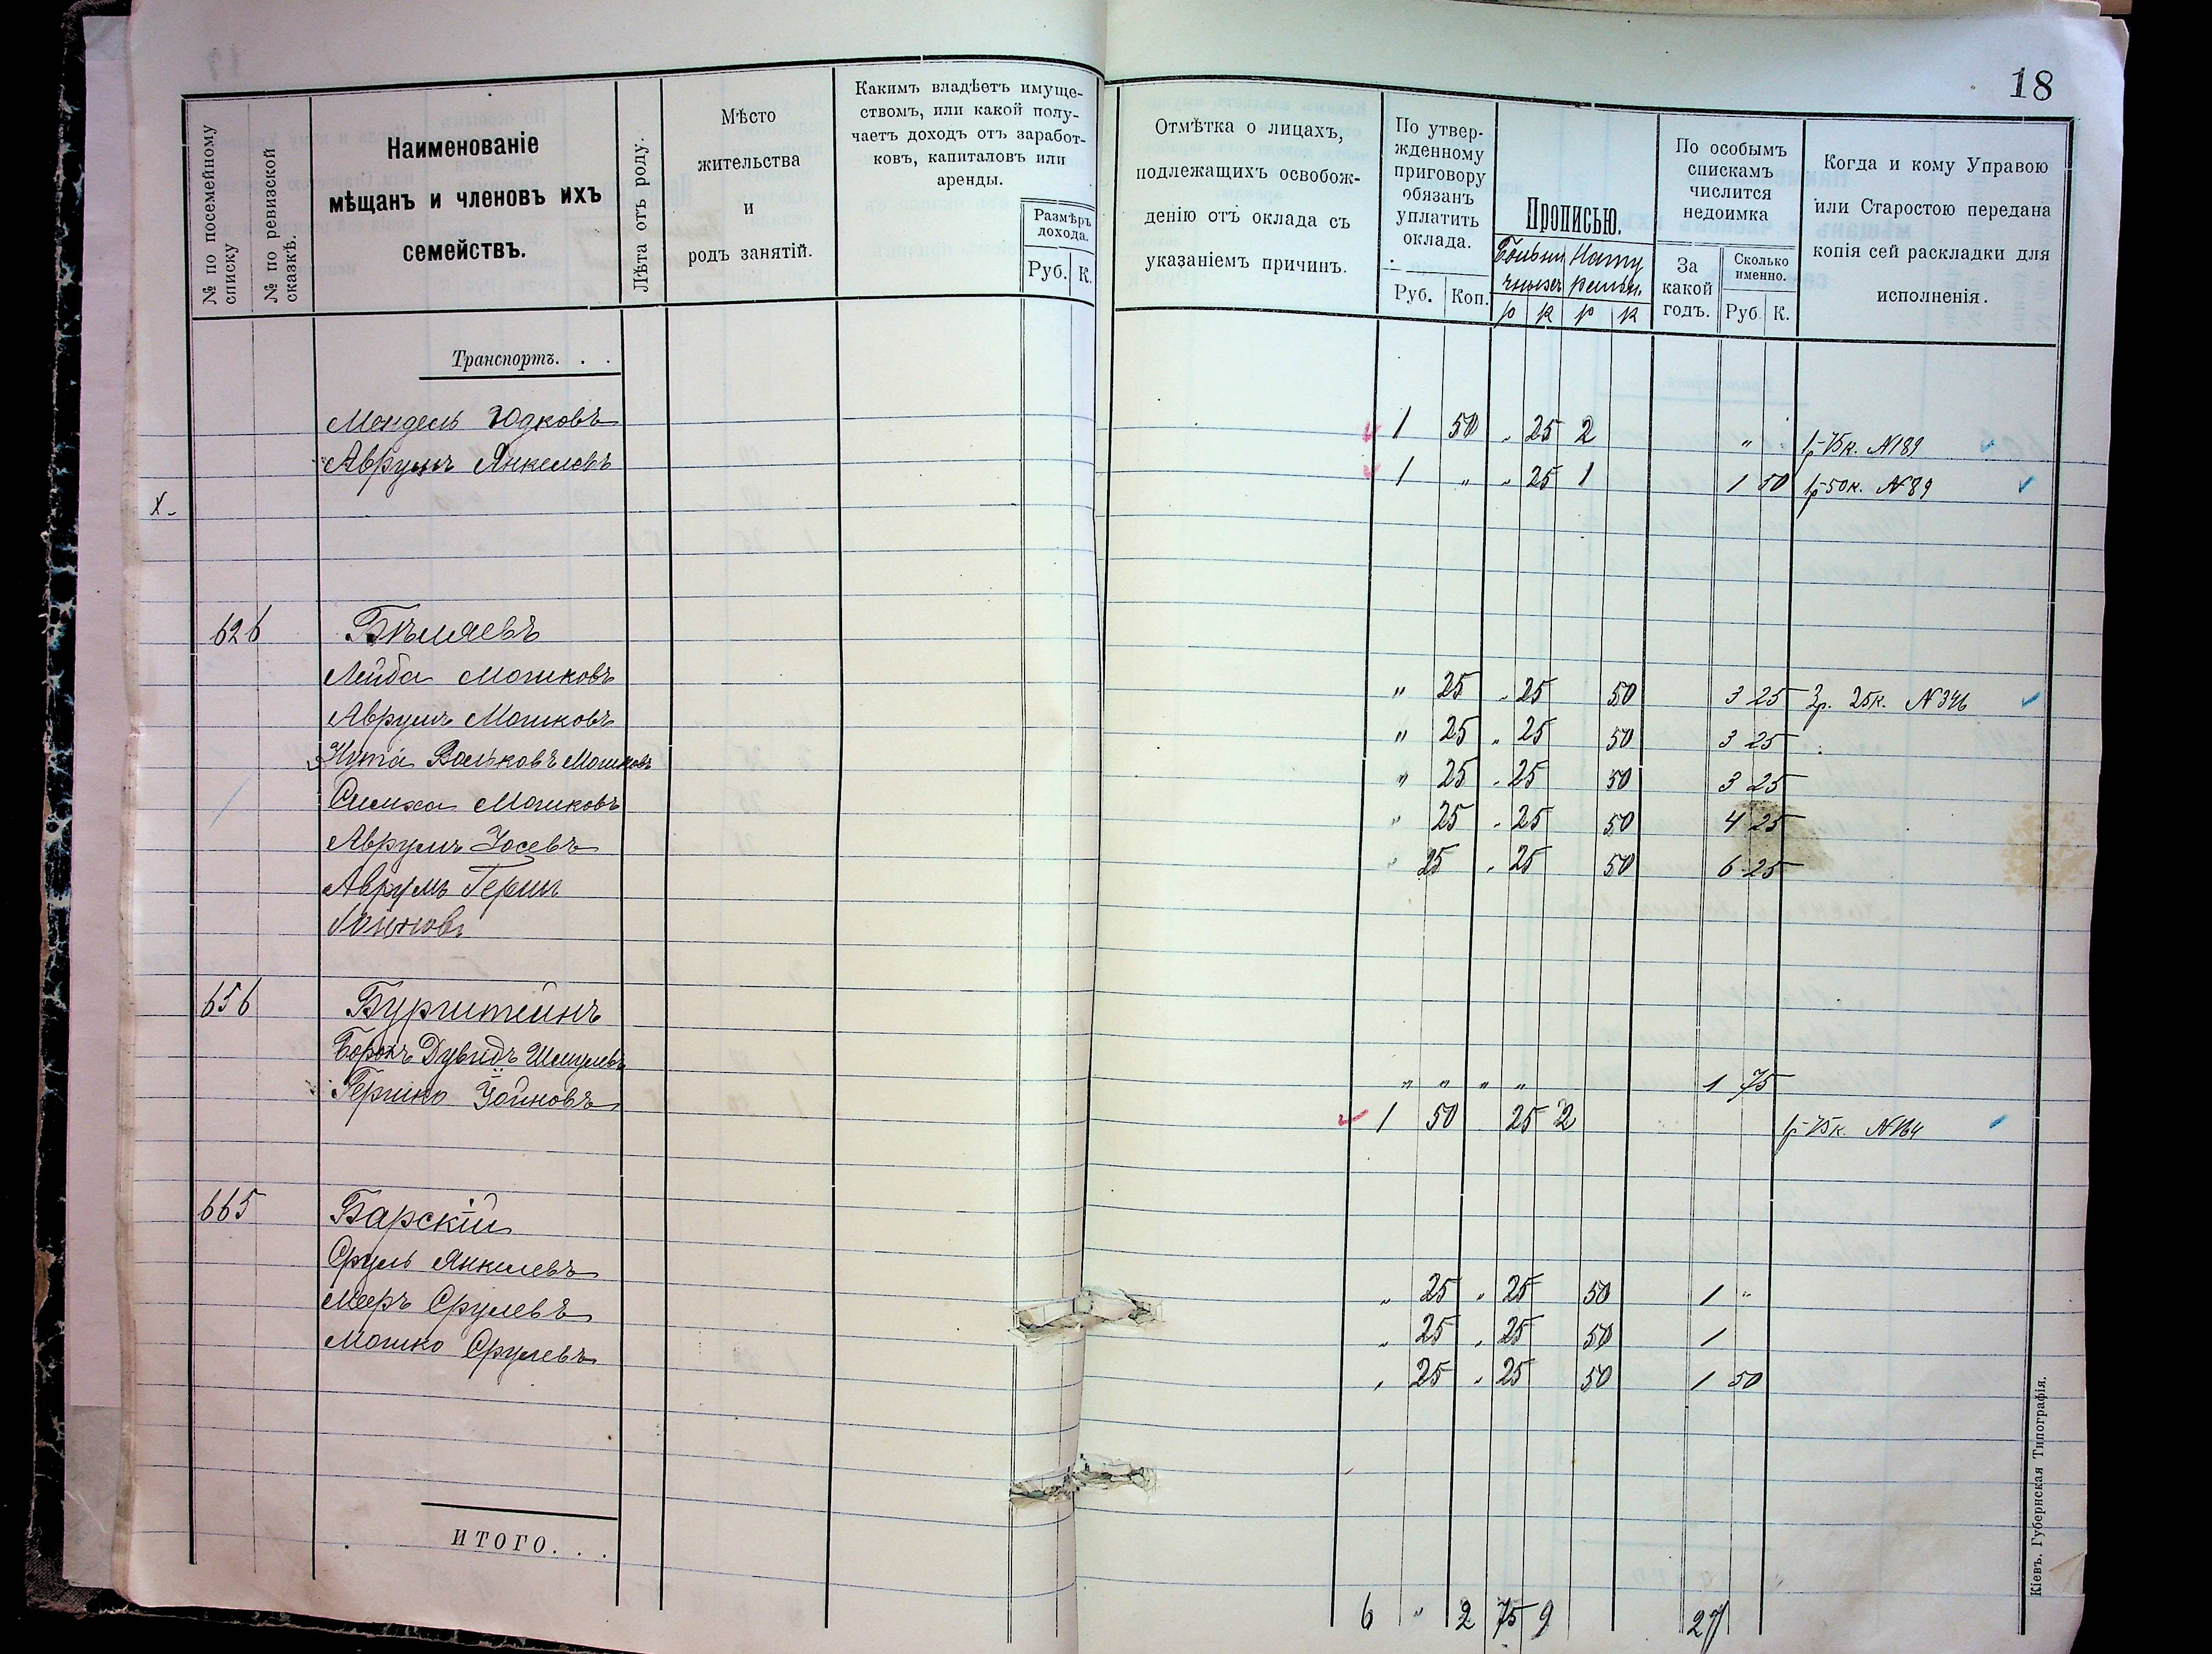 18
№ по посемейному списку
№ по ревизской сказкѣ.
Наименованіе
мѣщанъ и членовъ ихъ
семействъ.
Лѣта отъ роду.
Мѣсто
жительства
и
родъ занятій.
Какимъ владѣетъ имуще-
ствомъ, или какой полу-
чаетъ доходъ отъ заработ-
ковъ, капиталовъ или
аренды.
Размѣръ
дохода.
Руб. К.
Отмѣтка о лицахъ,
подлежащихъ освобож-
денію отъ оклада съ
указаніемъ причинъ.
По утвер-
жденному
приговору
обязанъ
уплатить
оклада.
Руб. Коп.
Прописью.
р к р к
По особымъ
спискамъ
числится
недоимка
За
какой
годъ.
Сколько
именно.
Руб К.
Когда и кому Управою
или Старостою передана
копія сей раскладки для
исполненія.
Транспортъ. . .
Мендель Юдковъ 1 50 „ 25 2 „ 1р 75к. №189
Аврумъ Янкелевъ 1 „ „ 25 1 1 50 1р 50к. №89
X
626 Бѣляевъ
Лейба Мошковъ „ 25 „ 25 50 3 25 3р. 25к. №346
Аврумъ Мошковъ „ 25 „ 25 50 3 25
Нута Вольковъ Мошковъ „ 25 „ 25 50 3 25
Симха Мошковъ „ 25 „ 25 50 4 25
Аврумъ Іосевъ „ 25 „ 25 50 6 25
Аврумъ Герш
656 Бурштейнъ
Борохъ Дувидъ Шмулевъ „ „ „ „ 1 75
Гершко Йойновъ 1 50 25 2 1р 75к. №164
665 Барскій
Сруль Янкелевъ „ 25 „ 25 50 1 „
Мееръ Срулевъ „ 25 „ 25 50 1
Мошко Срулевъ „ 25 „ 25 50 1 50
ИТОГО. . .
6 „ 2 75 9 27
Кіевъ. Губернская Типографія.